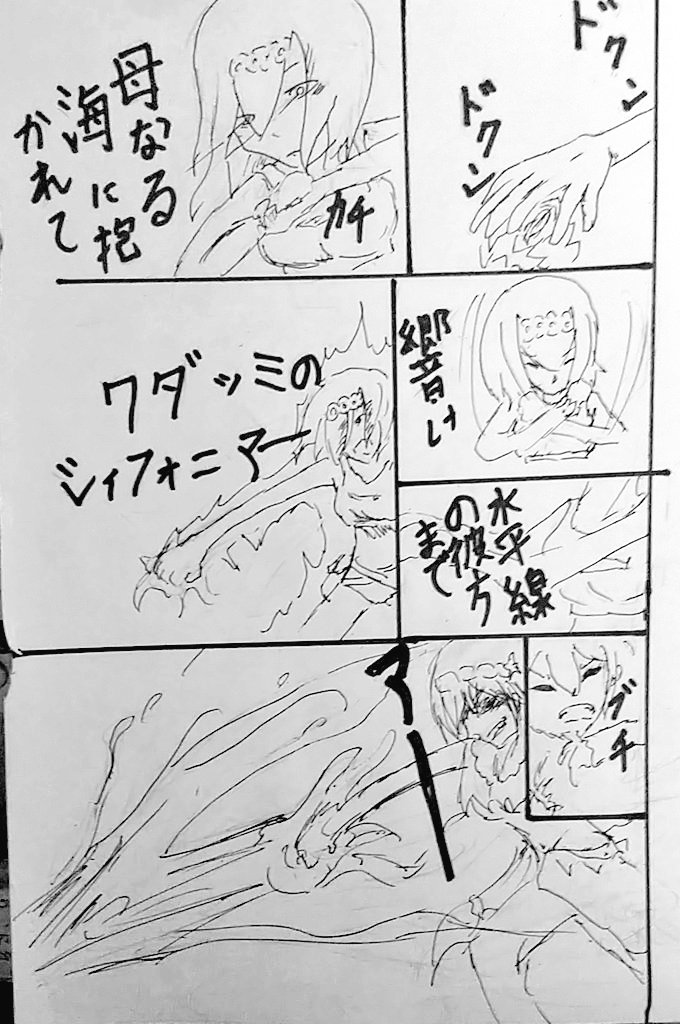 ドクン
ドクン
カチ
母なる
海に抱
かれて
響け
水平線
の彼方
まで
ワダッミの
シィフォニアー
ブチ
アー